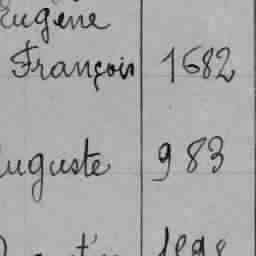 Eugène
François 1682
Auguste 983